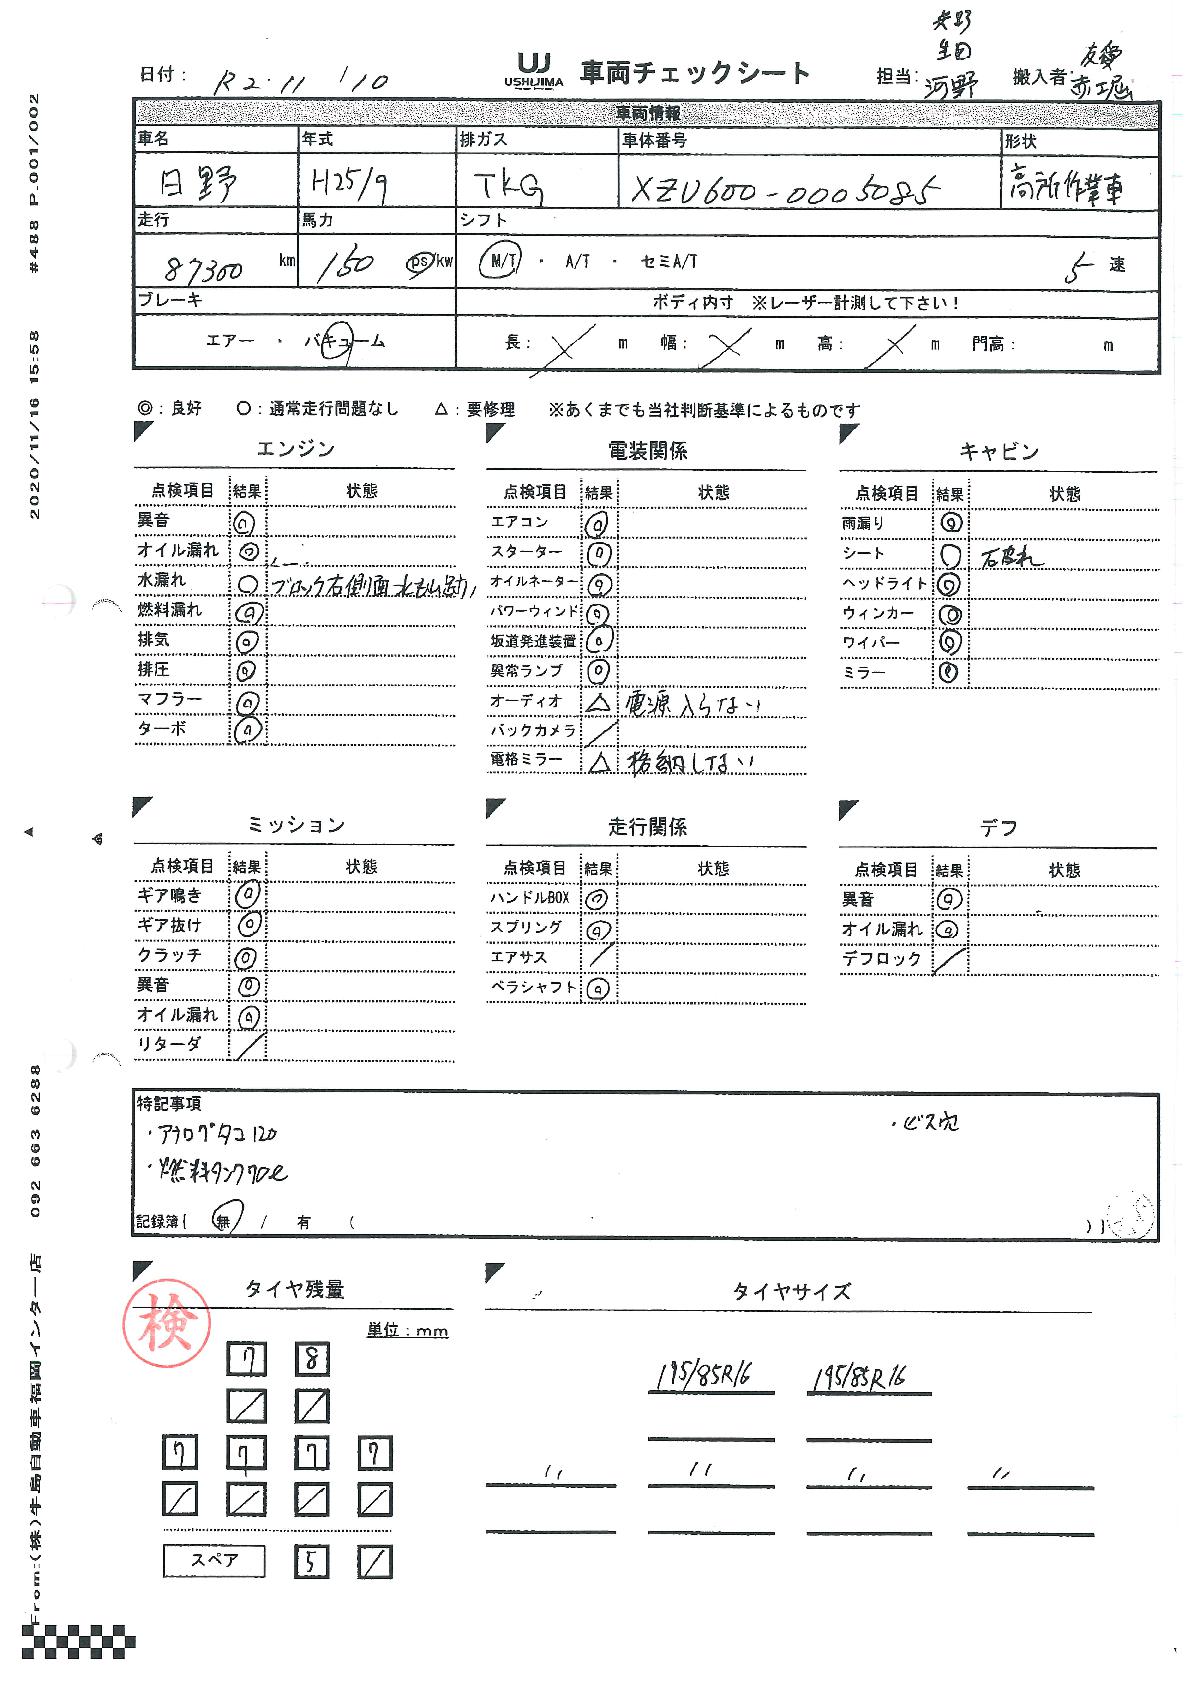 矢野
生田
日付： R2.11/10 UJ USHIJIMA 車両チェックシート 担当： 河野 搬入者： 友愛 赤堀
車両情報
車名 年式 排ガス 車体番号 形状
日野 H25/9 TKG XZU600-0005085 高所作業車
走行 馬力 シフト
87300 km 150 ps/kw M/T ・ A/T ・ セミA/T 5 速
ブレーキ ボディ内寸 ※レーザー計測して下さい！
エアー ・ バキューム 長： m 幅： m 高： m 門高： m
◎：良好 〇：通常走行問題なし △：要修理 ※あくまでも当社判断基準によるものです
エンジン
点検項目 結果 状態
異音 ◎
オイル漏れ ◎
水漏れ 〇 ブロック右側面水もれ跡
燃料漏れ ◎
排気 ◎
排圧 ◎
マフラー ◎
ターボ ◎
電装関係
点検項目 結果 状態
エアコン ◎
スターター ◎
オイルネーター ◎
パワーウィンド ◎
坂道発進装置 ◎
異常ランプ ◎
オーディオ △ 電源入らない
バックカメラ ／
電格ミラー △ 格納しない
キャビン
点検項目 結果 状態
雨漏り ◎
シート 〇 右破れ
ヘッドライト ◎
ウィンカー ◎
ワイパー ◎
ミラー ◎
ミッション
点検項目 結果 状態
ギア鳴き ◎
ギア抜け ◎
クラッチ ◎
異音 ◎
オイル漏れ ◎
リターダ ／
走行関係
点検項目 結果 状態
ハンドルBOX ◎
スプリング ◎
エアサス ／
ペラシャフト ◎
デフ
点検項目 結果 状態
異音 ◎
オイル漏れ ◎
デフロック ／
特記事項
・アナログタコ120 ・ビス穴
・燃料タンク70ℓ
記録簿{ 無 / 有 ( )}
タイヤ残量
検
単位：mm
7 8
／ ／
7 7 7 7
／ ／ ／ ／
スペア 5 ／
タイヤサイズ
195/85R16 195/85R16
〃 〃 〃 〃
2020/11/16 15:58 #488 P.001/002
From:(株)牛島自動車福岡インター店 092 663 6288